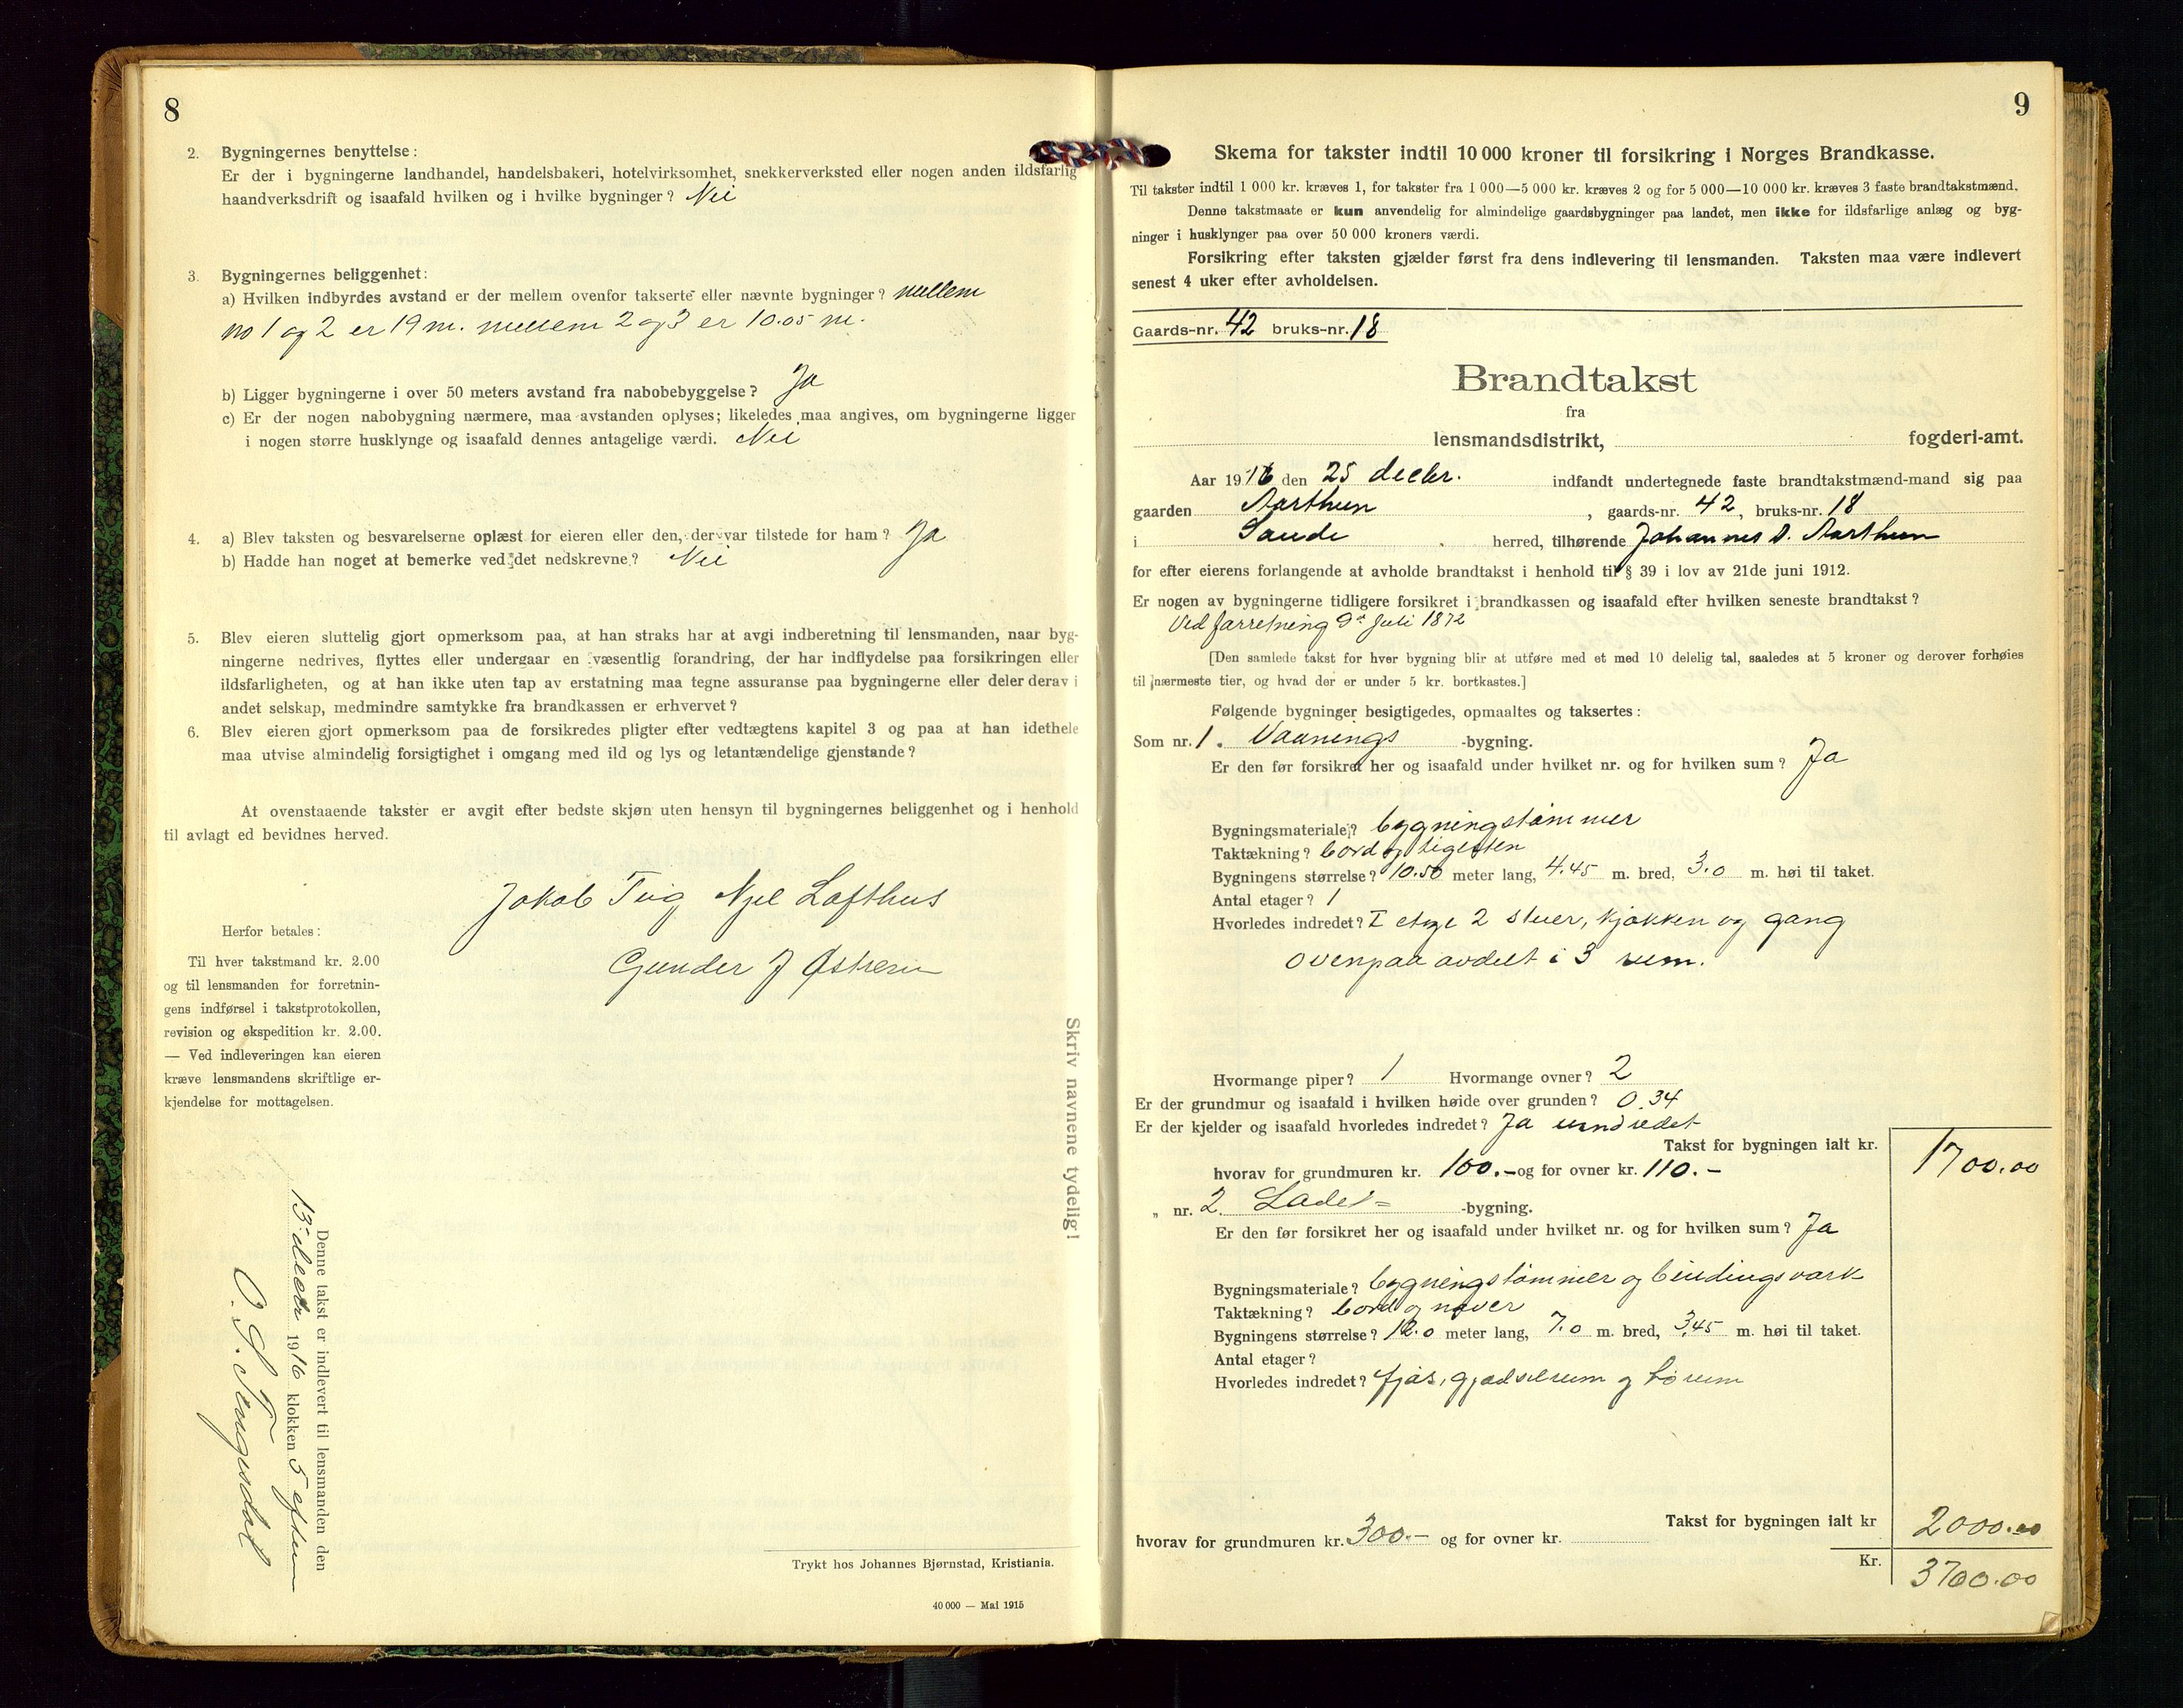 8
2. Bygningernes benyttelse:
Er der i bygningerne landhandel, handelsbakeri, hotelvirksomhet, snekkerverksted eller nogen anden ildsfarlig
haandverksdrift og isaafald hvilken og i hvilke bygninger? Nei
3. Bygningernes beliggenhet:
a) Hvilken indbyrdes avstand er der mellem ovenfor takserte eller nævnte bygninger? mellem
no 1 og 2 er 19 m. mellem 2 og 3 er 10.05 m.
b) Ligger bygningerne i over 50 meters avstand fra nabobebyggelse? Ja
c) Er der nogen nabobygning nærmere, maa avstanden oplyses; likeledes maa angives, om bygningerne ligger
i nogen større husklynge og isaafald dennes antagelige værdi. Nei
4. a) Blev taksten og besvarelserne oplæst for eieren eller den, der var tilstede for ham? Ja
b) Hadde han noget at bemerke ved det nedskrevne? Nei
5. Blev eieren sluttelig gjort opmerksom paa, at han straks har at avgi indberetning til lensmanden, naar byg-
ningerne nedrives, flyttes eller undergaar en væsentlig forandring, der har indflydelse paa forsikringen eller
ildsfarligheten, og at han ikke uten tap av erstatning maa tegne assuranse paa bygningerne eller deler derav i
andet selskap, medmindre samtykke fra brandkassen er erhvervet?
6. Blev eieren gjort opmerksom paa de forsikredes pligter efter vedtægtens kapitel 3 og paa at han idethele
maa utvise almindelig forsigtighet i omgang med ild og lys og letantændelige gjenstande?
At ovenstaaende takster er avgit efter bedste skjøn uten hensyn til bygningernes beliggenhet og i henhold
til avlagt ed bevidnes herved.
Jakob Tiig Njel Lofthus
Gunder J Østrem
Herfor betales:
Til hver takstmand kr. 2.00
og til lensmanden for forretnin-
gens indførsel i takstprotokollen,
revision og ekspedition kr. 2.00.
— Ved indleveringen kan eieren
kræve lensmandens skriftlige er-
kjendelse for mottagelsen.
Skriv navnene tydelig!
Denne takst er indlevert til lensmanden den
13 decbr 1916 klokken 5 efterm
O. S. Tengesdal
Trykt hos Johannes Bjørnstad, Kristiania.
40 000 — Mai 1915
9
Skema for takster indtil 10 000 kroner til forsikring i Norges Brandkasse.
Til takster indtil 1 000 kr. kræves 1, for takster fra 1 000—5 000 kr. kræves 2 og for 5 000—10 000 kr. kræves 3 faste brandtakstmænd.
Denne takstmaate er kun anvendelig for almindelige gaardsbygninger paa landet, men ikke for ildsfarlige anlæg og byg-
ninger i husklynger paa over 50 000 kroners værdi.
Forsikring efter taksten gjælder først fra dens indlevering til lensmanden. Taksten maa være indlevert
senest 4 uker efter avholdelsen.
Gaards-nr. 42 bruks-nr. 18
Brandtakst
fra
lensmandsdistrikt, fogderi-amt.
Aar 1916 den 25 decbr. indfandt undertegnede faste brandtakstmænd-mand sig paa
gaarden Aarthun, gaards-nr. 42, bruks-nr. 18
i Saude herred, tilhørende Johannes A. Aarthun
for efter eierens forlangende at avholde brandtakst i henhold til § 39 i lov av 21de juni 1912.
Er nogen av bygningerne tidligere forsikret i brandkassen og isaafald efter hvilken seneste brandtakst?
Ved forretning 9de Juli 1872
[Den samlede takst for hver bygning blir at utføre med et med 10 delelig tal, saaledes at 5 kroner og derover forhøies
til nærmeste tier, og hvad der er under 5 kr. bortkastes.]
Følgende bygninger besigtigedes, opmaaltes og taksertes:
Som nr. 1. Vaanings-bygning.
Er den før forsikret her og isaafald under hvilket nr. og for hvilken sum? Ja
Bygningsmateriale? bygningstømmer
Taktækning? bord og tigelsten
Bygningens størrelse? 10.50 meter lang, 4.45 m. bred, 3.0 m. høi til taket.
Antal etager? 1
Hvorledes indredet? I etage 2 stuer, kjøkken og gang
ovenpaa avdelt i 3 rum.
Hvormange piper? 1 Hvormange ovner? 2
Er der grundmur og isaafald i hvilken høide over grunden? 0.34
Er der kjelder og isaafald hvorledes indredet? Ja uindredet
Takst for bygningen ialt kr. 1700.00
hvorav for grundmuren kr. 100.- og for ovner kr. 110.-
„ nr. 2. Lades-bygning.
Er den før forsikret her og isaafald under hvilket nr. og for hvilken sum? Ja
Bygningsmateriale? bygningstømmer og bindingsværk
Taktækning? bord og never
Bygningens størrelse? 12.0 meter lang, 7.0 m. bred, 3.45 m. høi til taket.
Antal etager?
Hvorledes indredet? fjøs, gjødselrum og hørum
Takst for bygningen ialt kr 2000.00
hvorav for grundmuren kr. 300.- og for ovner kr.
Kr. 3700.00